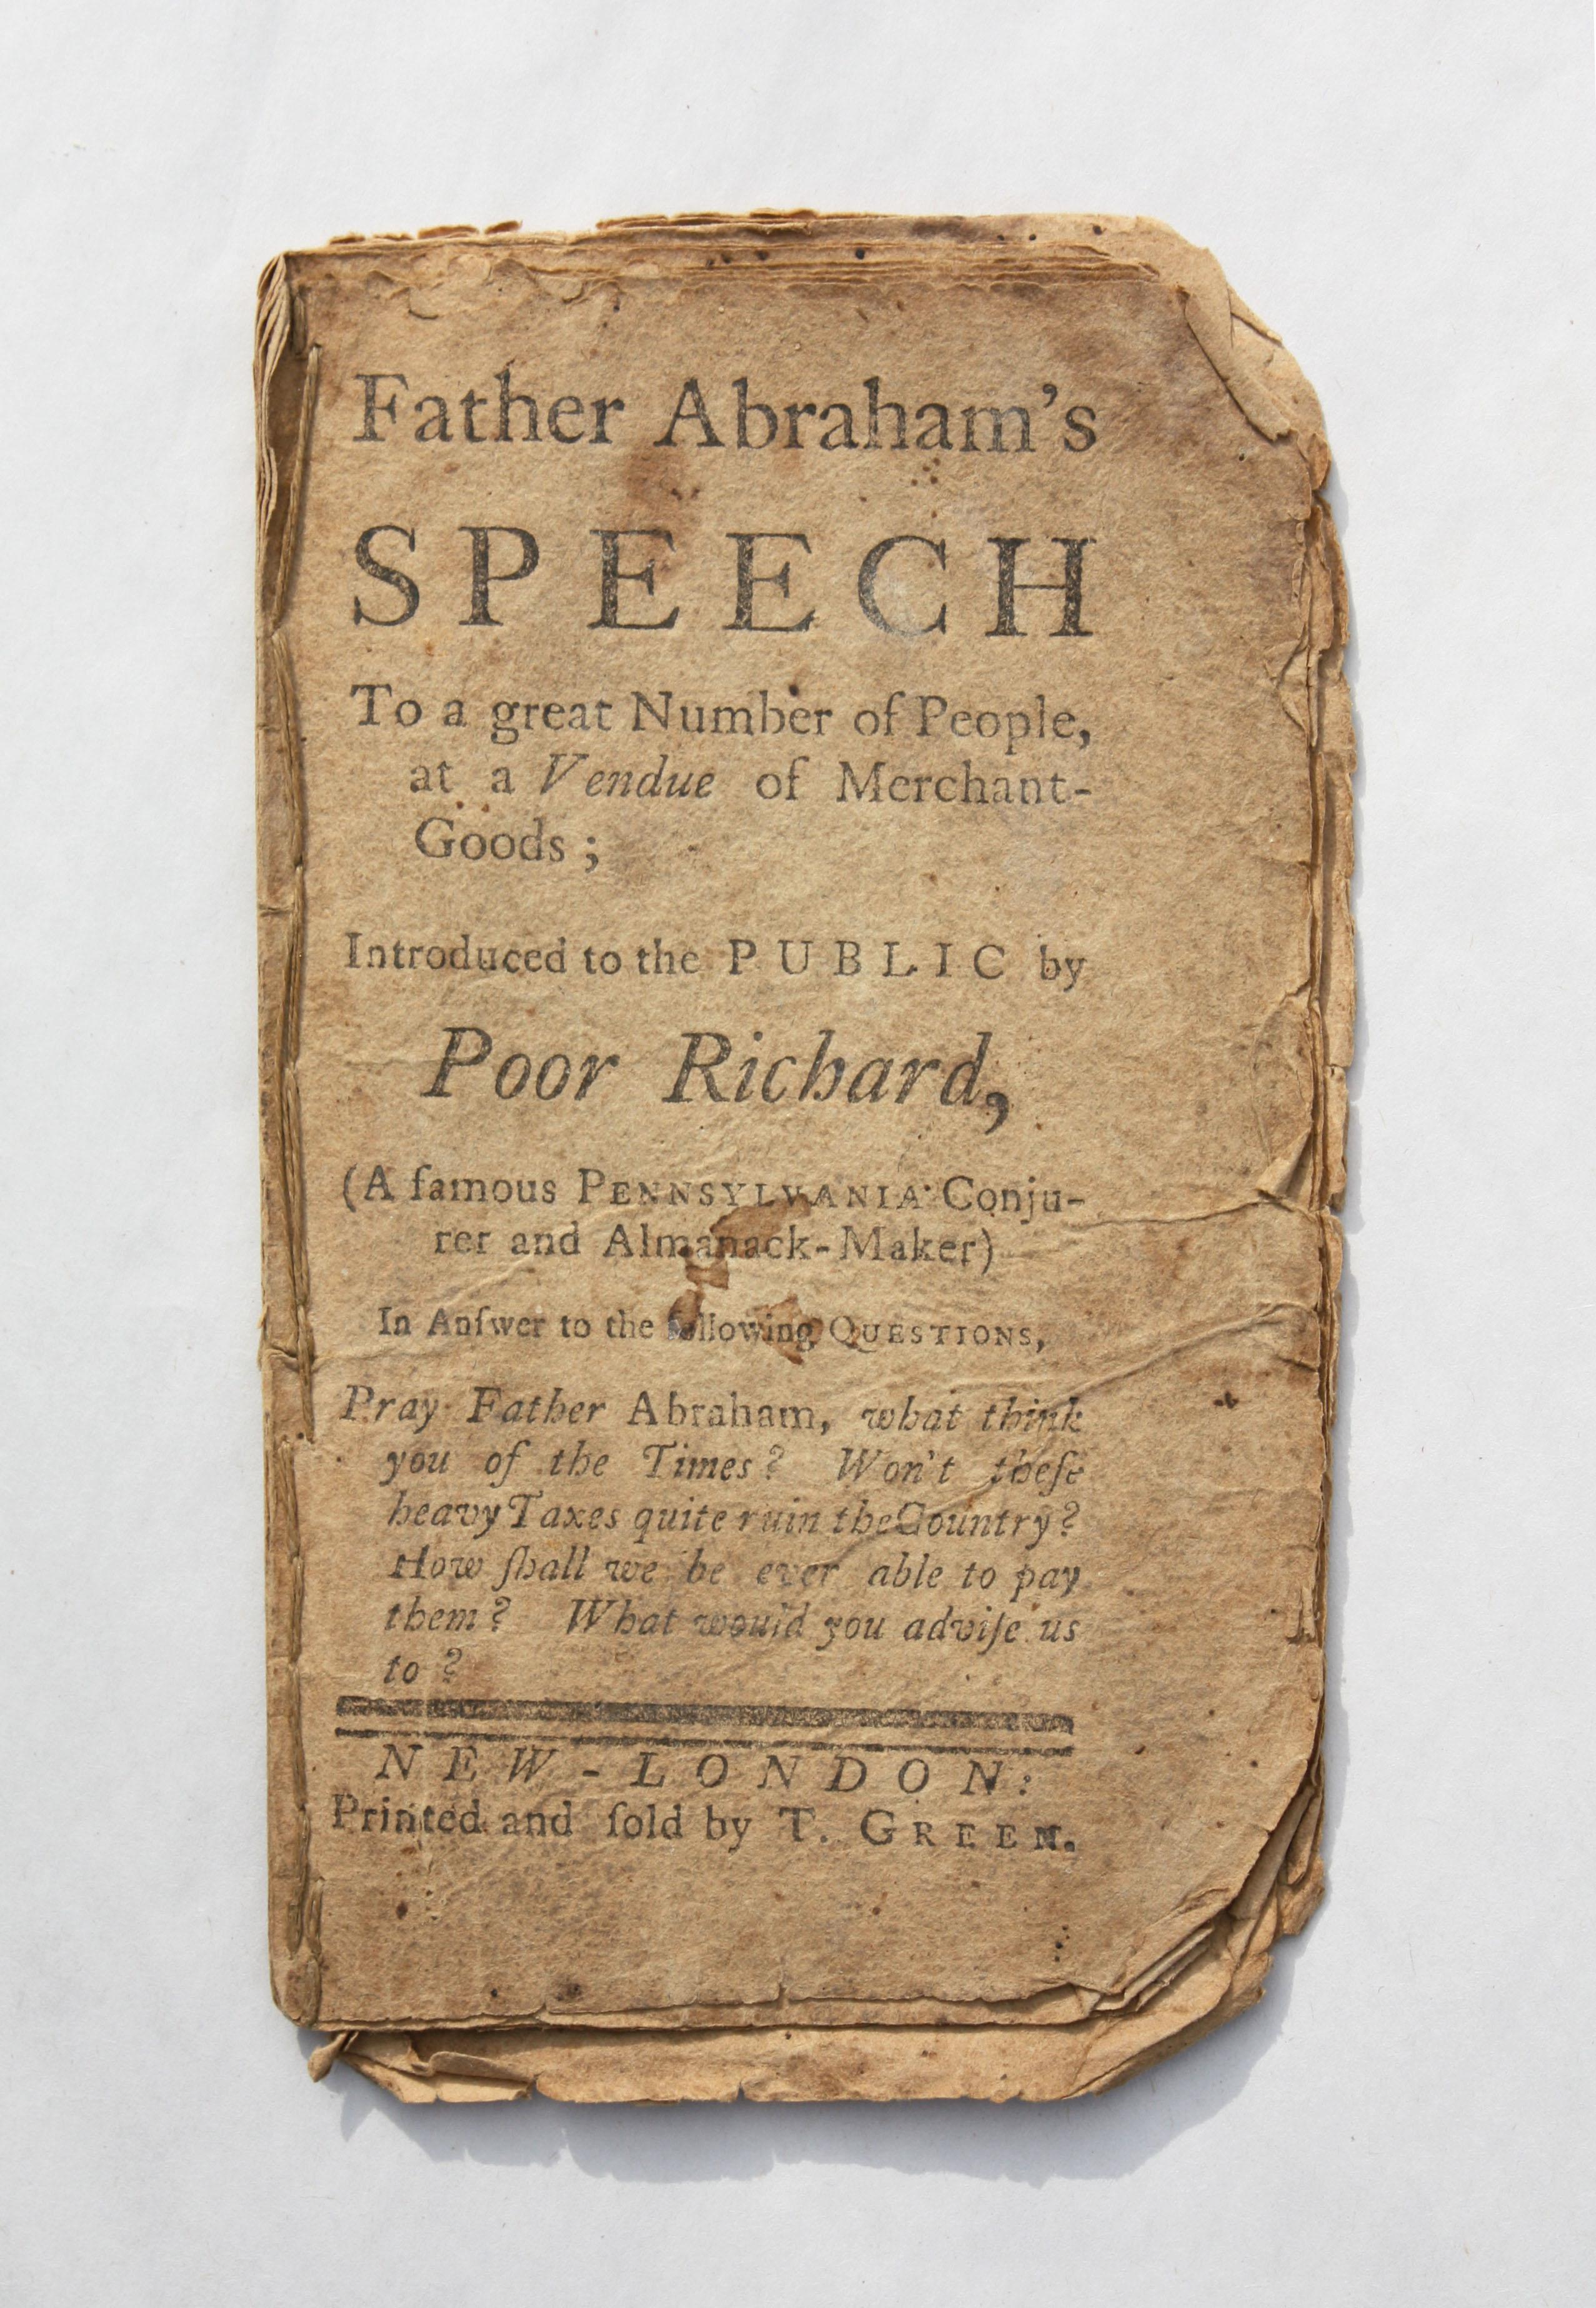 Father Abraham's
SPEECH
To a great Number of People,
at a Vendue of Merchant-
Goods ;
Introduced to the PUBLIC by
Poor Richard,
(A famous PENNSYLVANIA Conju-
rer and Almanack-Maker)
In Anſwer to the following QUESTIONS,
Pray Father Abraham, what think
you of the Times? Won't theſe
heavy Taxes quite ruin the Country?
How ſhall we be ever able to pay
them? What would you adviſe us
to?
NEW-LONDON:
Printed and ſold by T. GREEN.